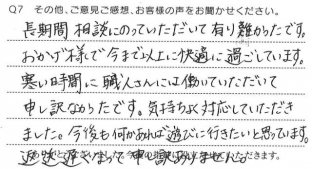 Q7 その他、ご意見ご感想、お客様の声をお聞かせください。
長期間相談にのっていただいて有り難かったです。
おかげ様で今まで以上に快適に過ごしています。
寒い時間に職人さんには働いていただいて
申し訳なかったです。気持ちよく対応していただき
ました。今後も何かあれば遊びに行きたいと思っています。
返送遅くなって申し訳ありませんでした。